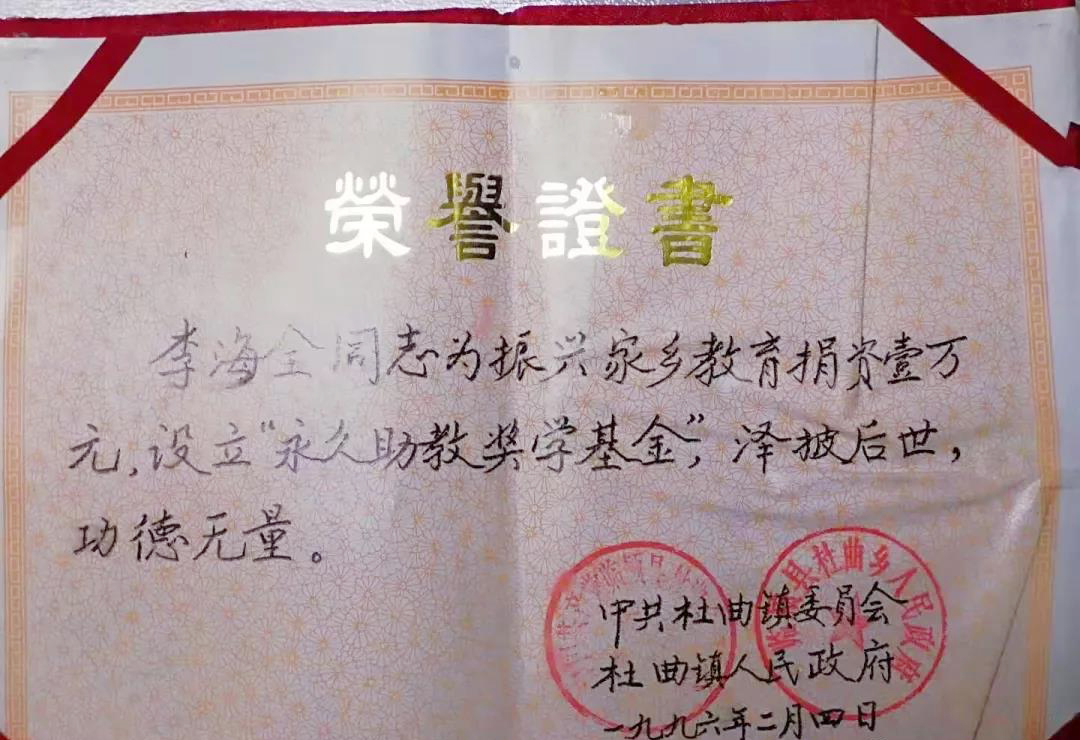 榮譽證書
李海全同志为振兴家乡教育捐资壹万
元，设立“永久助教奖学基金”，泽披后世，
功德无量。
中共杜曲镇委员会
杜曲镇人民政府
一九九六年二月四日
县杜曲乡人民政府